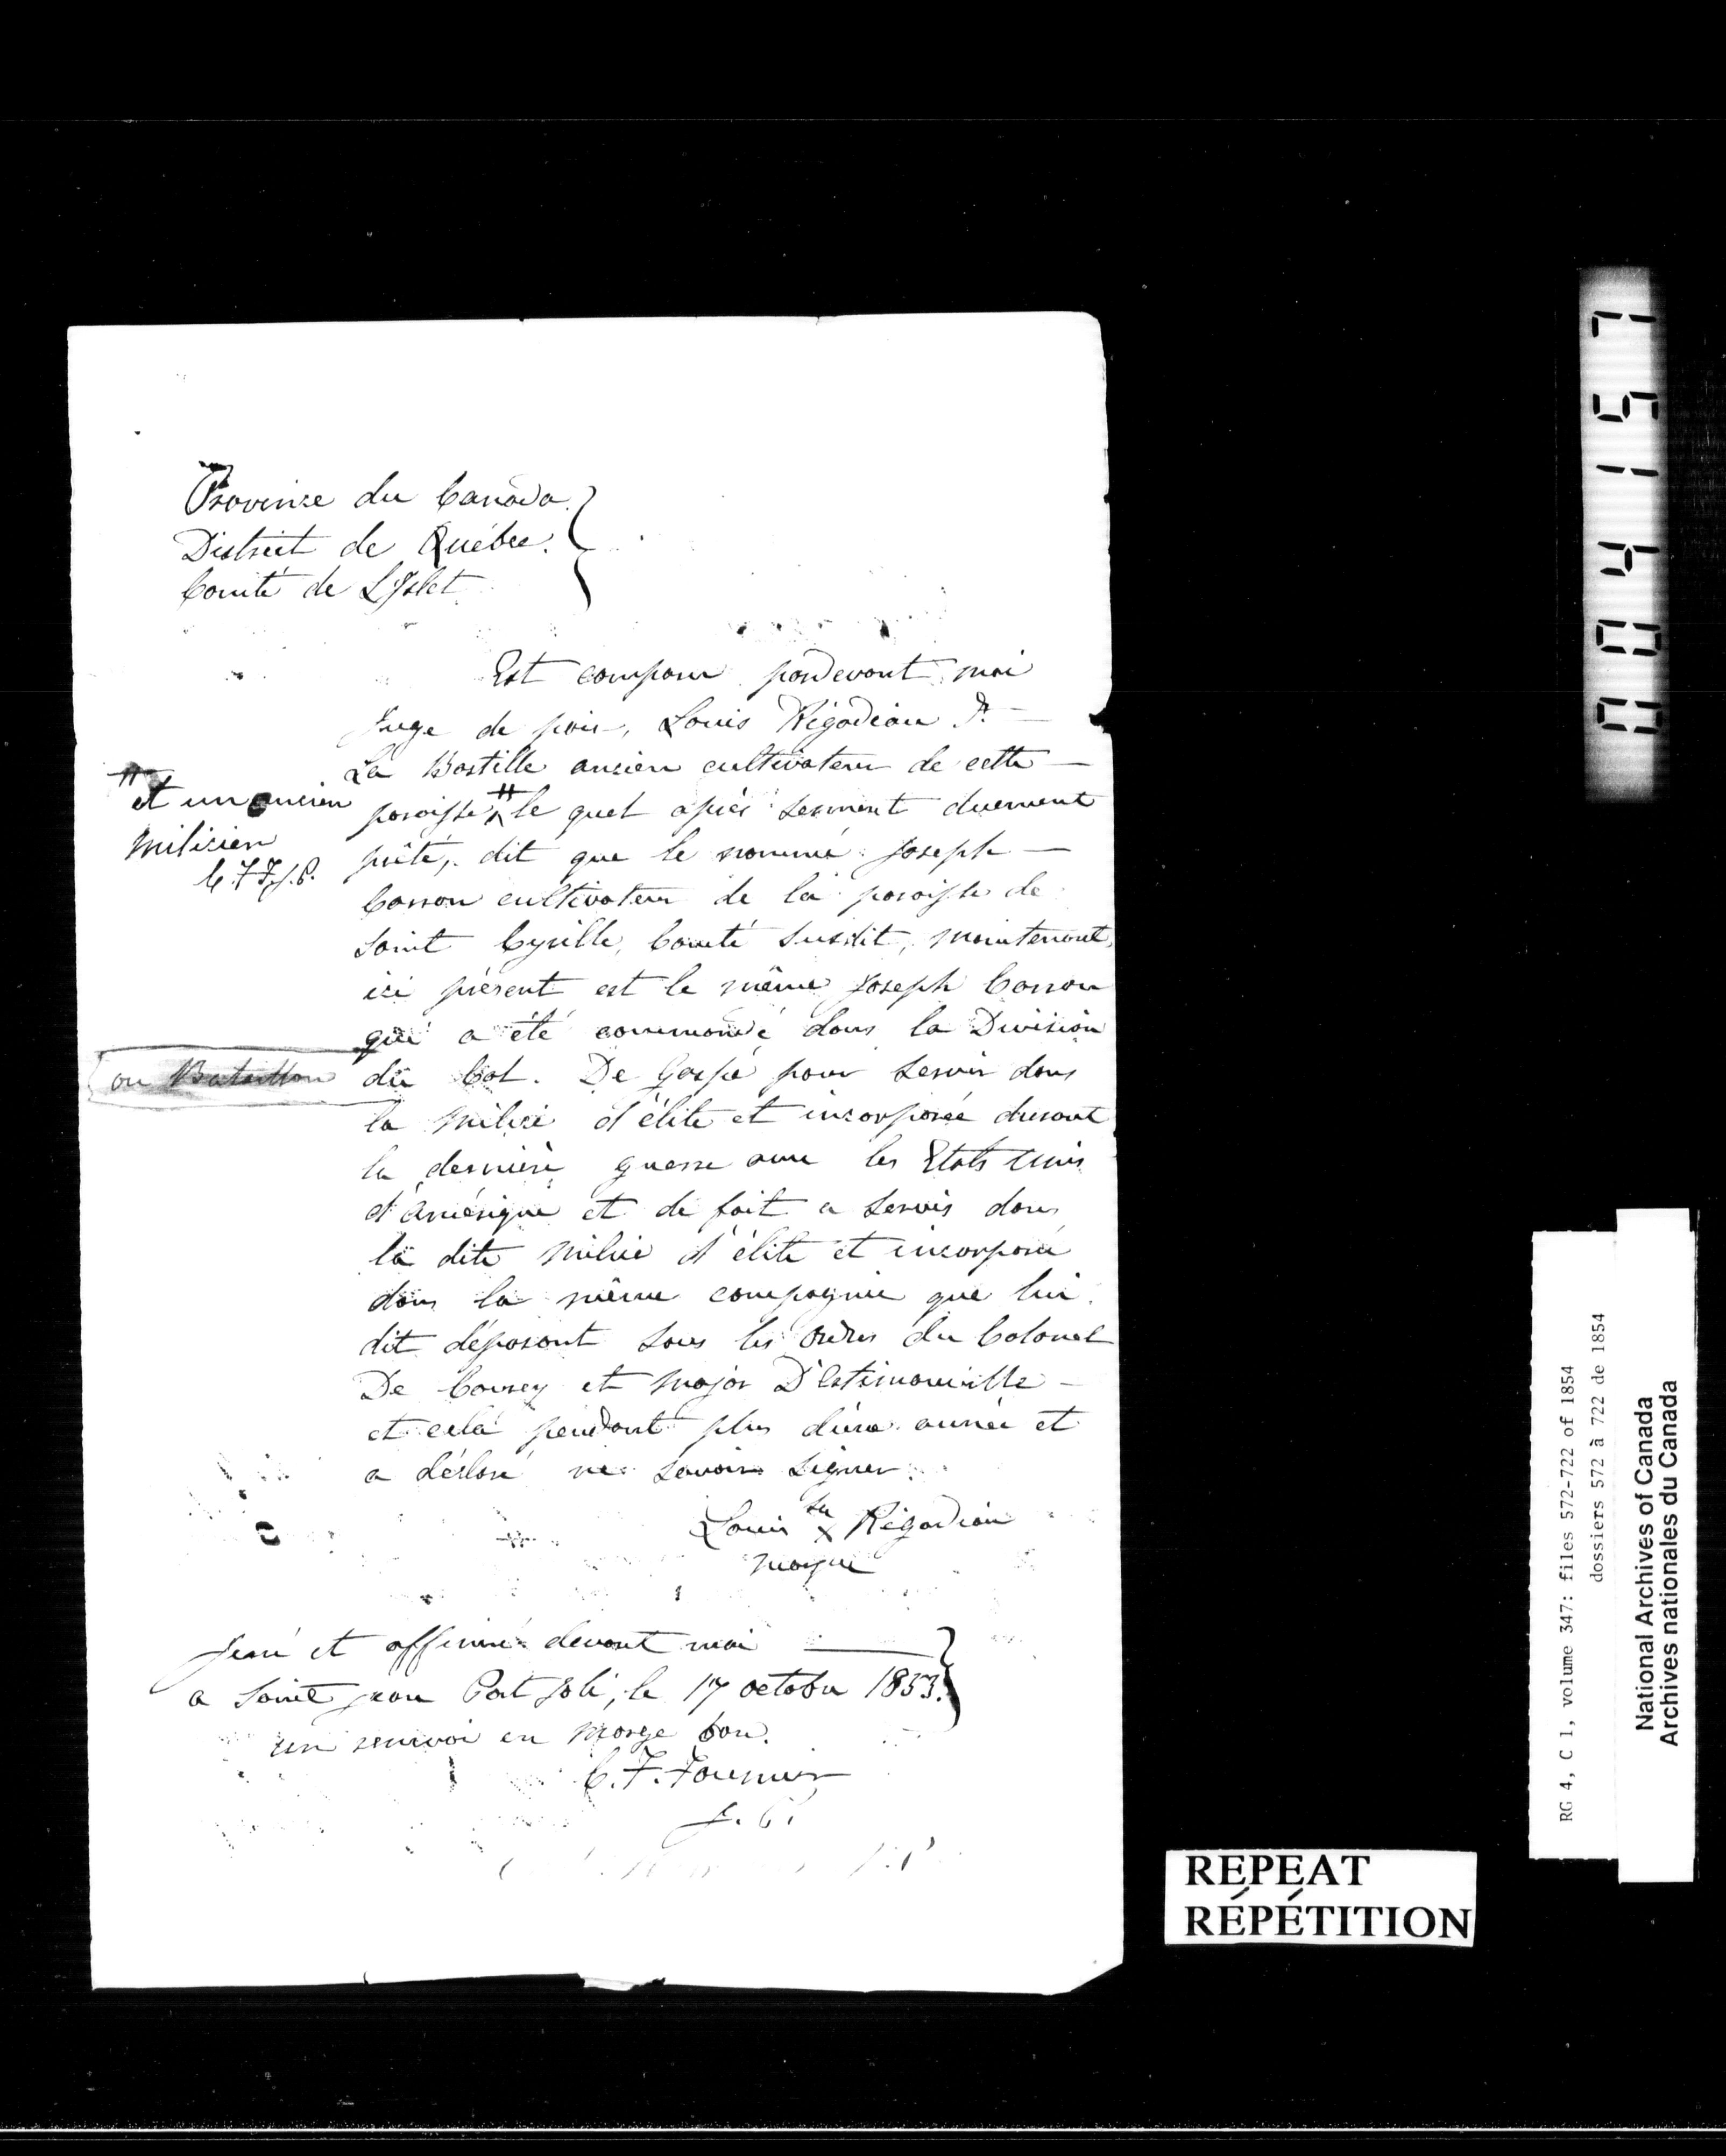 Province du Canada.
District de Québec.
Comté de L'Islet
Est comparu pardevant moi
Juge de paix, Louis Rigodiau dt.
La Bastille ancien cultivateur de cette
paroisse # le quel après serment duement
# et un ancien
milicien
C.F.F. J.P.
prêté, dit que le nommé Joseph
Caron cultivateur de la paroisse de
Saint Cyrille, Comté susdit, maintenant
ici présent est le même Joseph Caron
qui a été commandé dans la Division
ou Bataillon
du Col. De Gaspé pour servir dans
la milice d'élite et incorporée durant
la dernière guerre avec les Etats Unis
d'Amérique et de fait a servis dans
la dite milice d'élite et incorporée
dans la même compagnie que lui
dit déposant sous les ordres du Colonel
De Courcy et Major D'Estimauville
et cela pendant plus d'une année et
a déclaré ne savoir signer.
Louis sa x Rigodiau
marque
Juré et affirmé devant moi
a Saint Jean Port Joli, le 17 octobre 1853.
un renvoi en marge bon.
C. F. Fournier
J. P.
J.P.
REPEAT
RÉPÉTITION
004151 7
RG 4, C 1, volume 347: files 572-722 of 1854
dossiers 572 à 722 de 1854
National Archives of Canada
Archives nationales du Canada